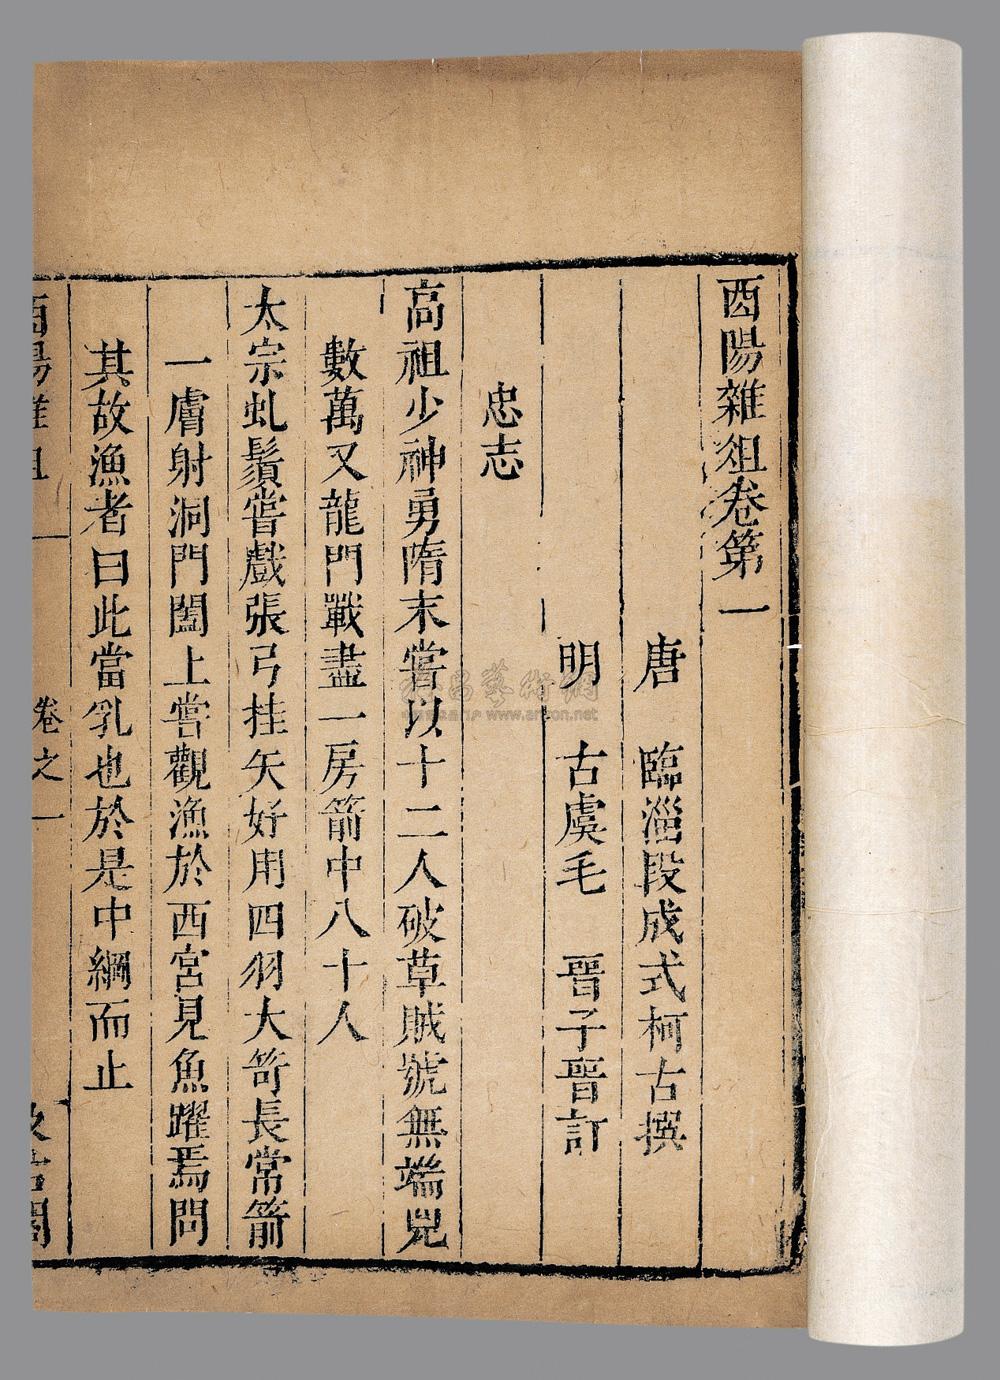 酉陽雜俎卷第一
唐　臨淄段成式柯古撰
明　古虞毛　晉子晉訂
忠志
高祖少神勇隋末嘗以十二人破草賊號無端兒
數萬又龍門戰盡一房箭中八十人
太宗虬鬚嘗戲張弓挂矢好用四羽大笴長常箭
一膚射洞門闔上嘗觀漁於西宮見魚躍焉問
其故漁者曰此當乳也於是中網而止
酉陽雜俎
卷之一
汲古閣
www.artron.net